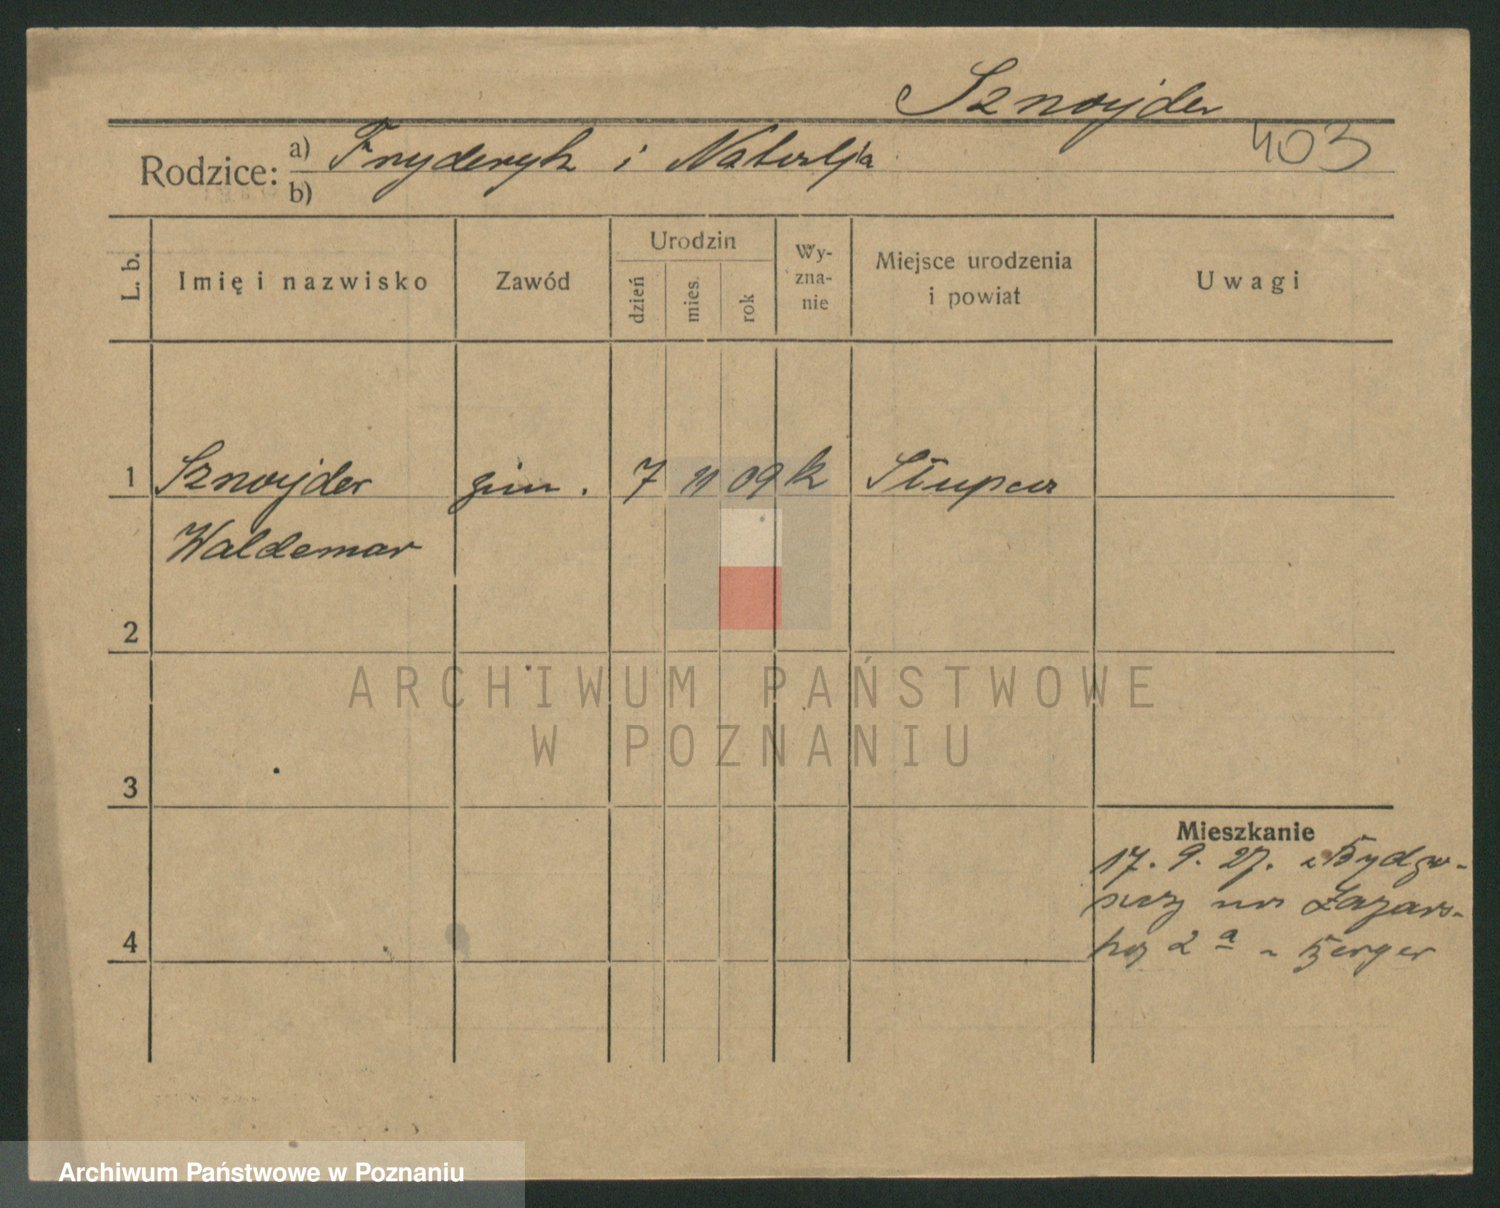 Sznajder
403
Rodzice: a) Fryderyk i Natalja
b)
L. b.
Imię i nazwisko
Zawód
Urodzin
dzień
mies.
rok
Wy-
zna-
nie
Miejsce urodzenia
i powiat
Uwagi
1 Sznajder gim. 7 11 09 k Słupca
Waldemar
2
ARCHIWUM PAŃSTWOWE
W POZNANIU
3
Mieszkanie
17. 9. 27. z Bydgo-
szczy na Łazars-
ką 2a - Berger
4
Archiwum Państwowe w Poznaniu